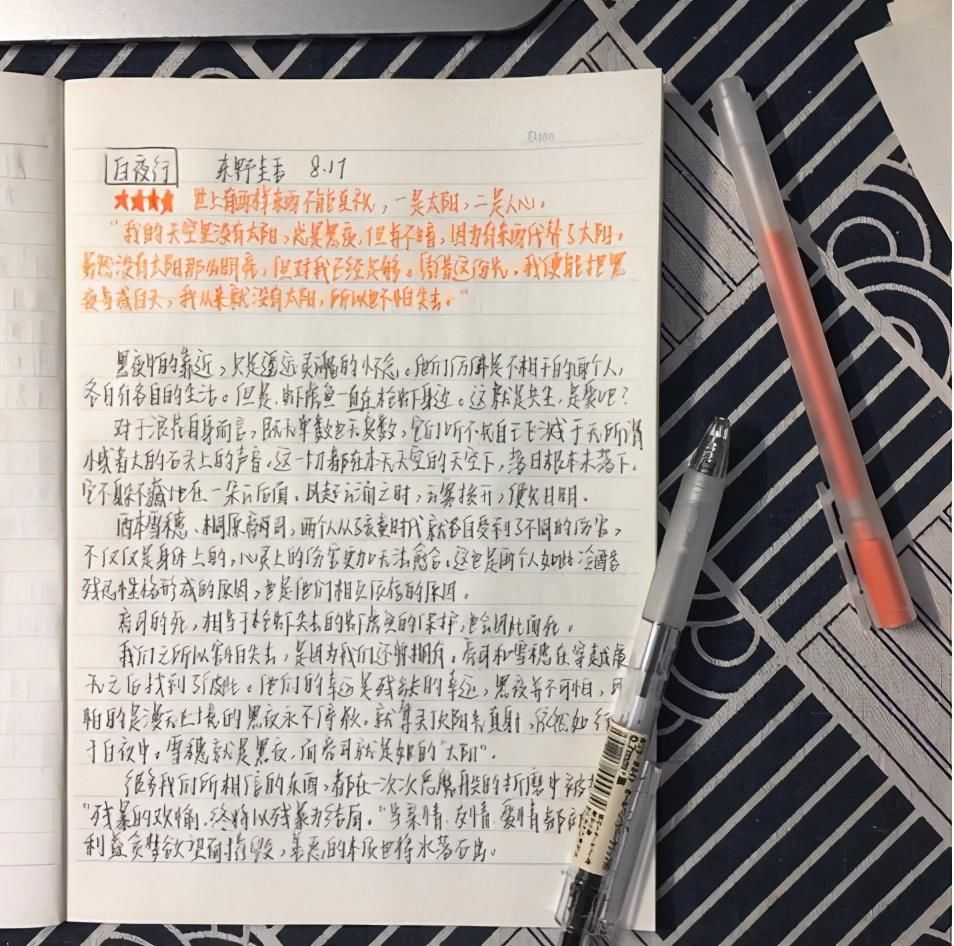 Date
白夜行 东野圭吾 8.17
★★★★ 世上有两样东西不能直视，一是太阳，二是人心。
“我的天空里没有太阳，总是黑夜，但并不暗，因为有东西代替了太阳。
虽然没有太阳那么明亮，但对我已经足够。凭借这份光，我便能把黑
夜当成白天，我从来就没有太阳，所以也不怕失去。”
黑夜中的靠近，只是遥远灵魂的怀念。他们仿佛是不相干的两个人，
各自有各自的生活。但是，虾虎鱼一直在枪虾身边。这就是共生，是爱吧？
对于浪花自身而言，既无单数也无复数，它们听不
大的石头上的声音，这一切都在本无天空的天空下，落日根本未落下。
它不躲不藏地在一朵云后面。风起云涌之时，云雾拨开，便知日明。
西本雪穗、桐原亮司，两个人从孩童时代就各自受到了不同的伤害，
不仅仅是身体上的，心灵上的伤害更加无法愈合。这也是两个人如此冷酷
残忍性格形成的原因，也是他们相互依存的原因。
亮司的死，相当于枪虾失去的虾虎鱼的保护，也会因此而死。
我们之所以害怕失去，是因为我们还曾拥有。亮司和雪穗在
之后找到了彼此。他们的幸运是残缺的幸运，黑夜并不可怕，可
怕的是漫无止境的黑夜永不停歇。就算头顶阳光直射，依然如行
于白夜中。雪穗就是黑夜，而亮司就是她的“太阳”。
很多我们所相信的东西，都在一次次的折磨中被
“残暴的欢愉，终将以残暴为结局。”当亲情、友情、爱情都
利益贪婪欲望而摧毁，善恶的本质也将水落石出。
0.7mm